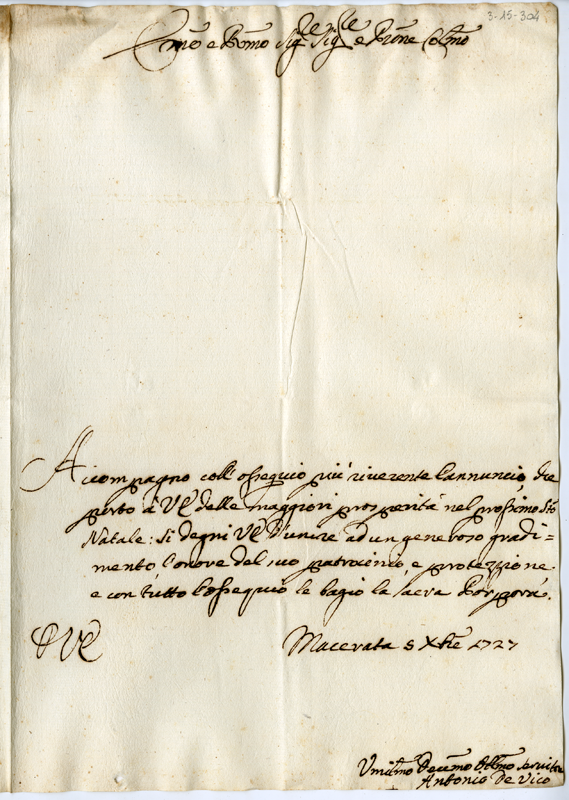 3-15-304
Emo e Rmo Sigle Sigle e Prône Colmo
Accompagno coll'ossequio più riverente l'annuncio, che
porto à VE delle maggiori prosperità nel prossimo Sto
Natale: Si degni VE d'unire ad un generoso gradi=
mento l'onore del suo patrocinio, e protezzione
e con tutto l'ossequio le bagio la sacra Porpora.
D VE
Macerata 5 Xbre 1727
Umilmo Devmo Obbmo servitore
Antonio de Vico